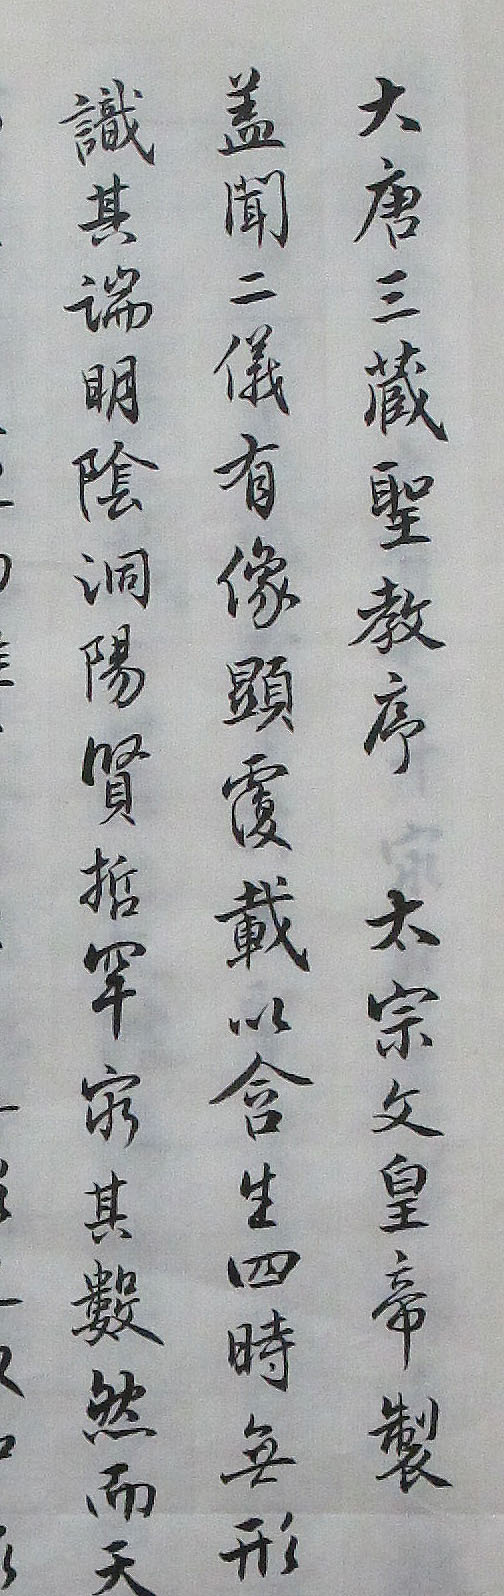 大唐三藏聖教序 太宗文皇帝製
盖聞二儀有像顯覆載以含生四時無形
識其端明陰洞陽賢哲罕窮其數然而天